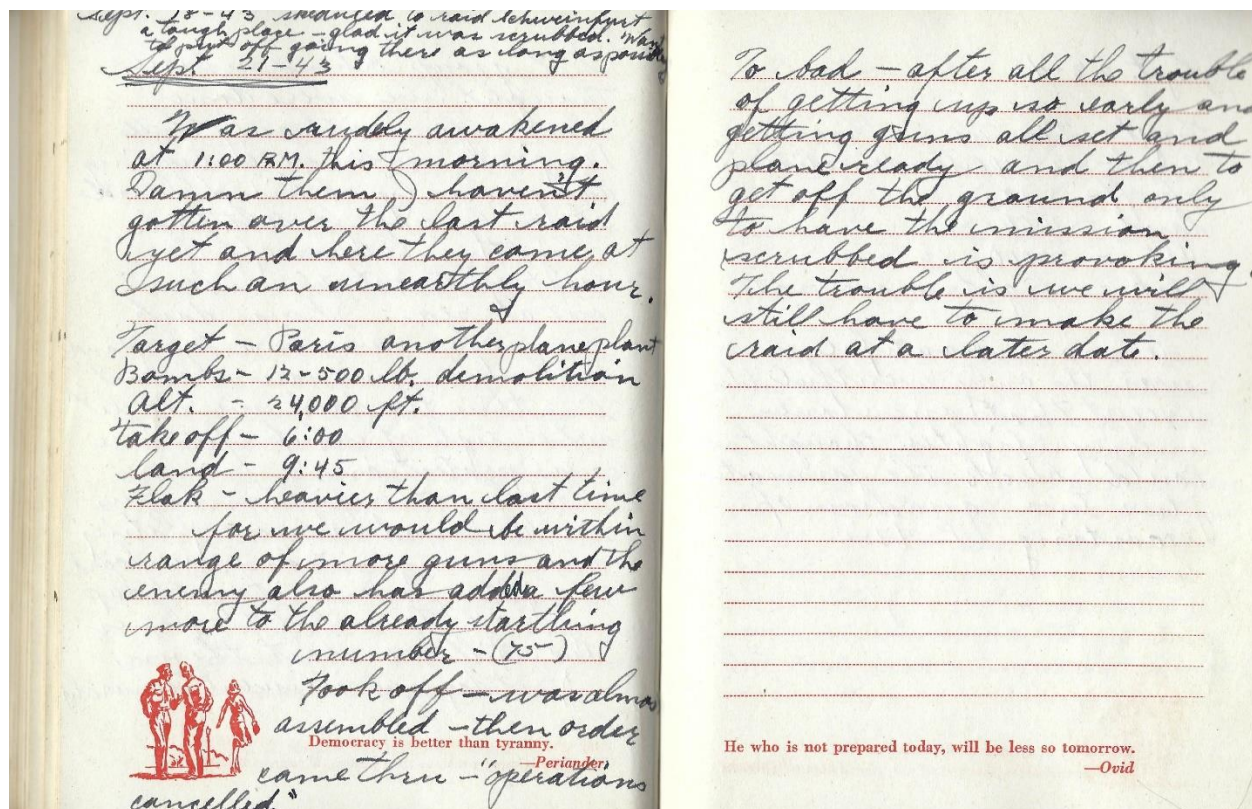 Sept. 18-43 skeduled to raid Schweinfurt
a tough place - glad it was scrubbed. Want
to put off going there as long as possible
Sept. 21-43
Was rudely awakened
at 1:00 A.M. this morning.
Damn them I haven't
gotten over the last raid
yet and here they come at
such an unearthly hour.
Target - Paris another plane plant
Bombs - 12-500 lb. demolition
Alt. - 24,000 ft.
take off - 6:00
land - 9:45
Flak - heavier than last time
for we would be within
range of more guns and the
enemy also has added a few
more to the already startling
number - (75)
Took off - was almos
assembled - then order
Democracy is better than tyranny.
—Periander
came thru - "operations
cancelled."
To bad - after all the trouble
of getting up so early and
getting guns all set and
plane ready and then to
get off the ground only
to have the mission
scrubbed is provoking.
The trouble is we will
still have to make the
raid at a later date.
He who is not prepared today, will be less so tomorrow.
—Ovid